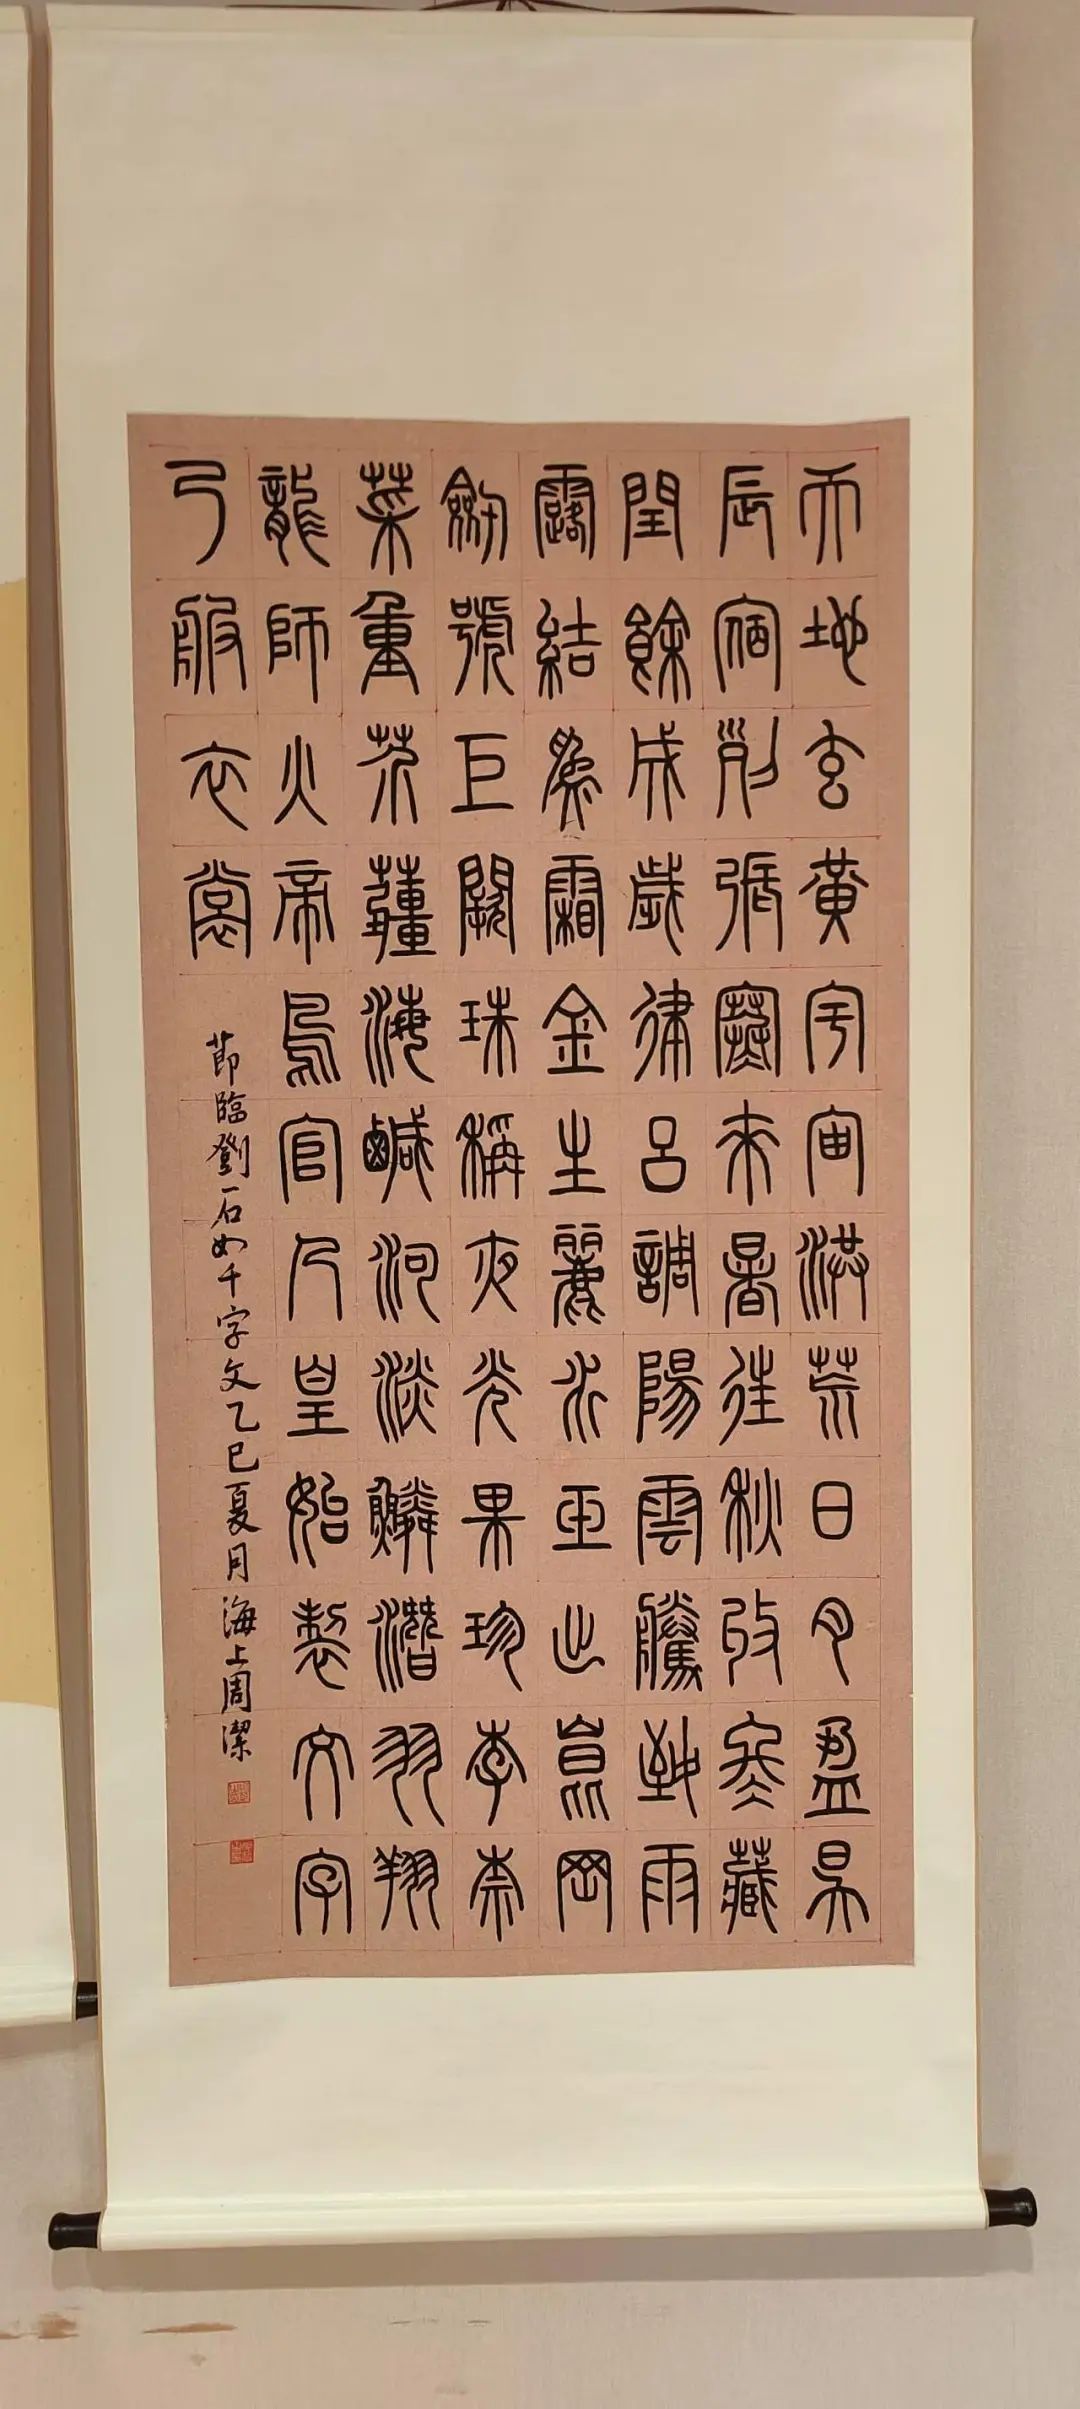 天地玄黃宇宙洪荒日月盈昃
辰宿列張寒來暑往秋收冬藏
閏餘成歲律呂調陽雲騰致雨
露結爲霜金生麗水玉出崑岡
劒號巨闕珠稱夜光果珍李柰
菜重芥薑海鹹河淡鱗潛羽翔
龍師火帝鳥官人皇始製文字
乃服衣裳
節臨鄧石如千字文乙巳夏月海上周潔